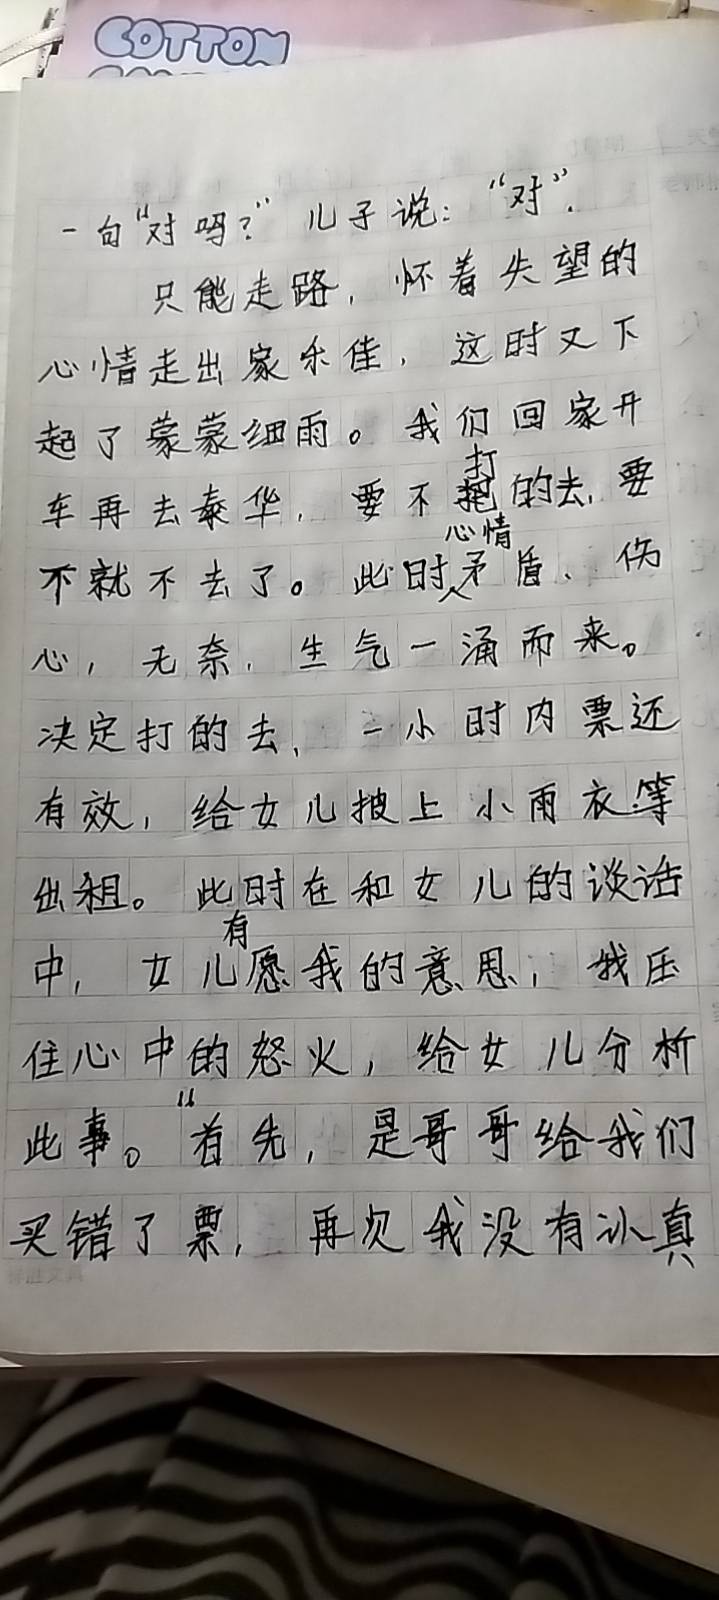 COTTON
一句“对吗?”儿子说:“对”.
只能走路,怀着失望的
心情走出家乐佳,这时又下
起了蒙蒙细雨。我们回家开
车再去泰华,要不打的去,要
不就不去了。此时心情矛盾、伤
心,无奈,生气一涌而来。
决定打的去,一小时内票还
有效,给女儿披上小雨衣等
出租。此时在和女儿的谈话
中,女儿有愿我的意思,我压
住心中的怒火,给女儿分析
此事。“首先,是哥哥给我们
买错了票,再次我没有认真